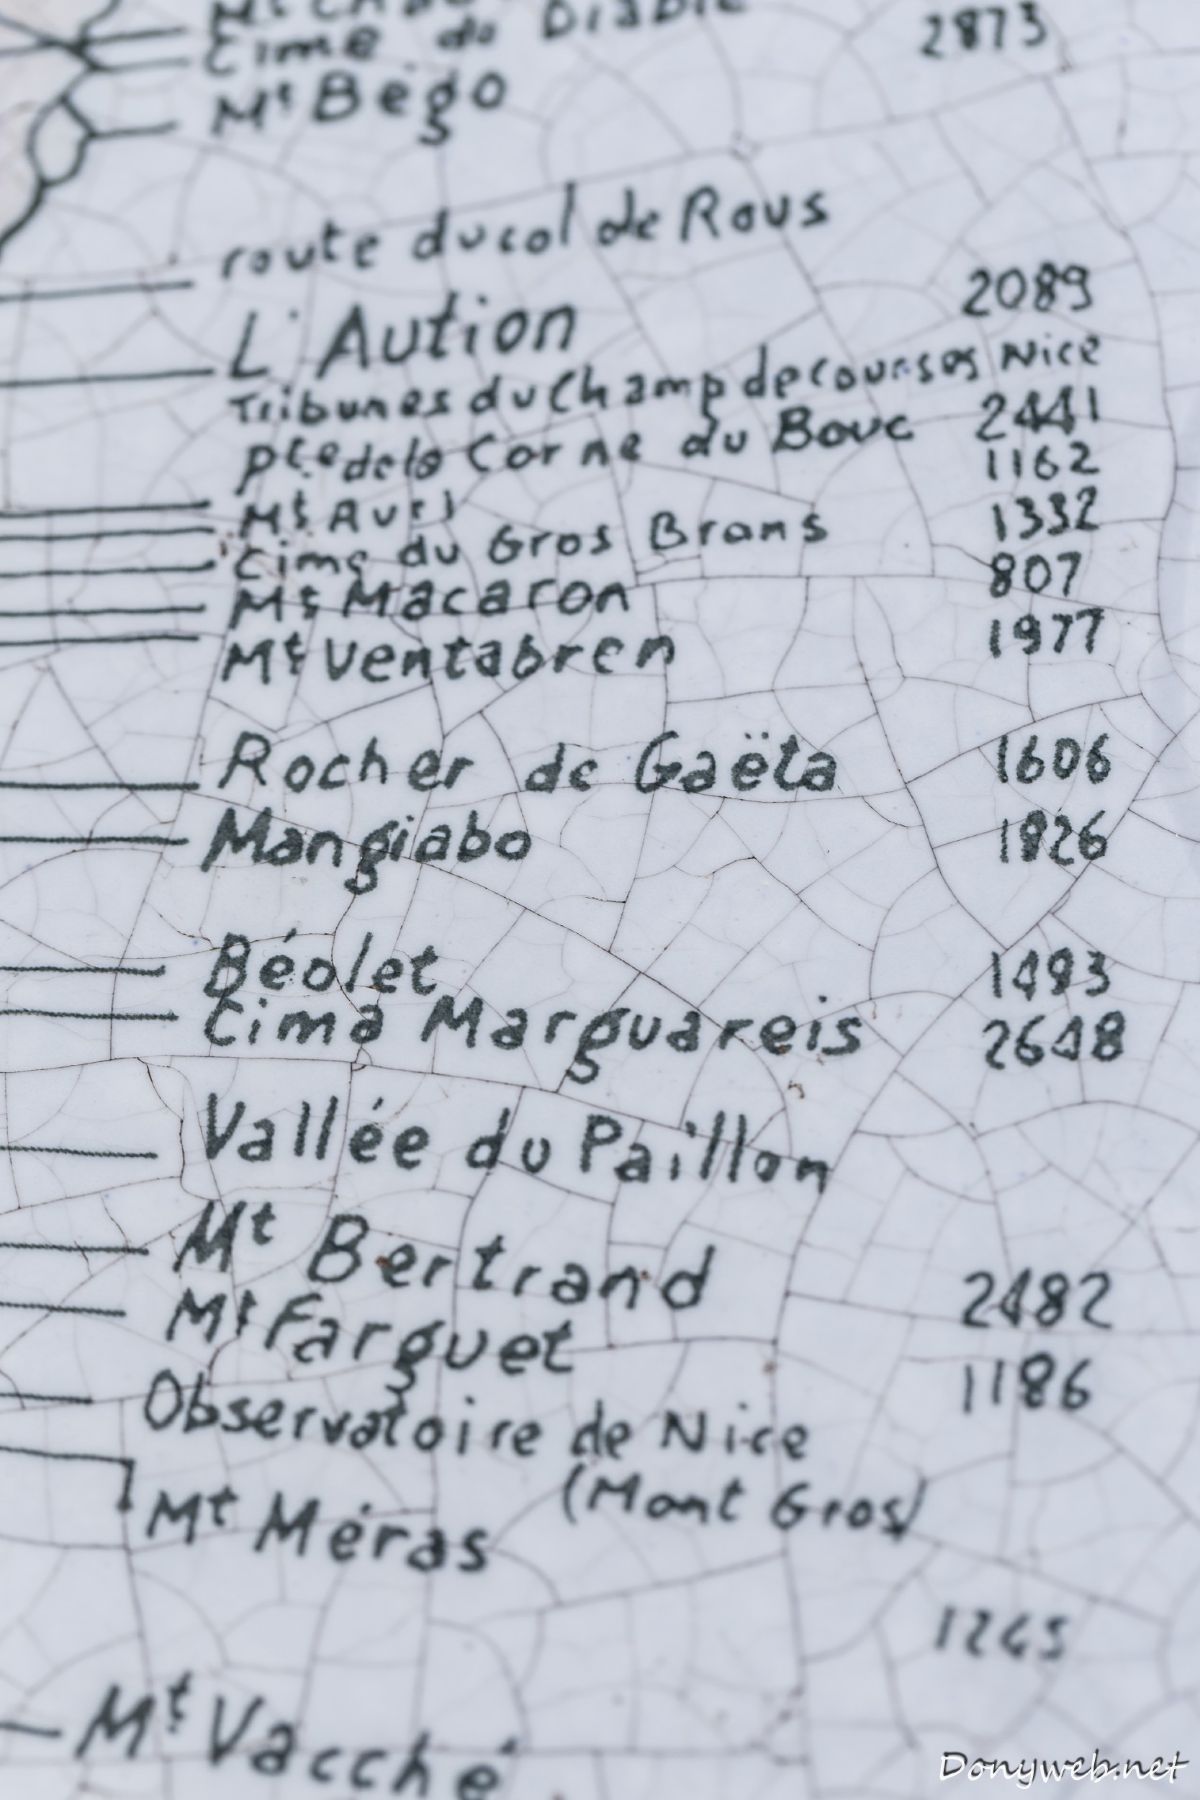 Cime du Diable
Mt Bégo 2873
route du col de Rous
L'Aution 2089
Tribunes du Champ de courses Nice
Pte de la Corne du Bouc 2441
Mt Auri 1162
Cime du Gros Brans 1332
Mt Macaron 807
Mt Ventabren 1977
Rocher de Gaëta 1606
Mangiabo 1826
Béolet 1493
Cima Marguareis 2648
Vallée du Paillon
Mt Bertrand 2482
Mt Farguet 1186
Observatoire de Nice
(Mont Gros)
Mt Méras
1265
Mt Vacché
Donyweb.net